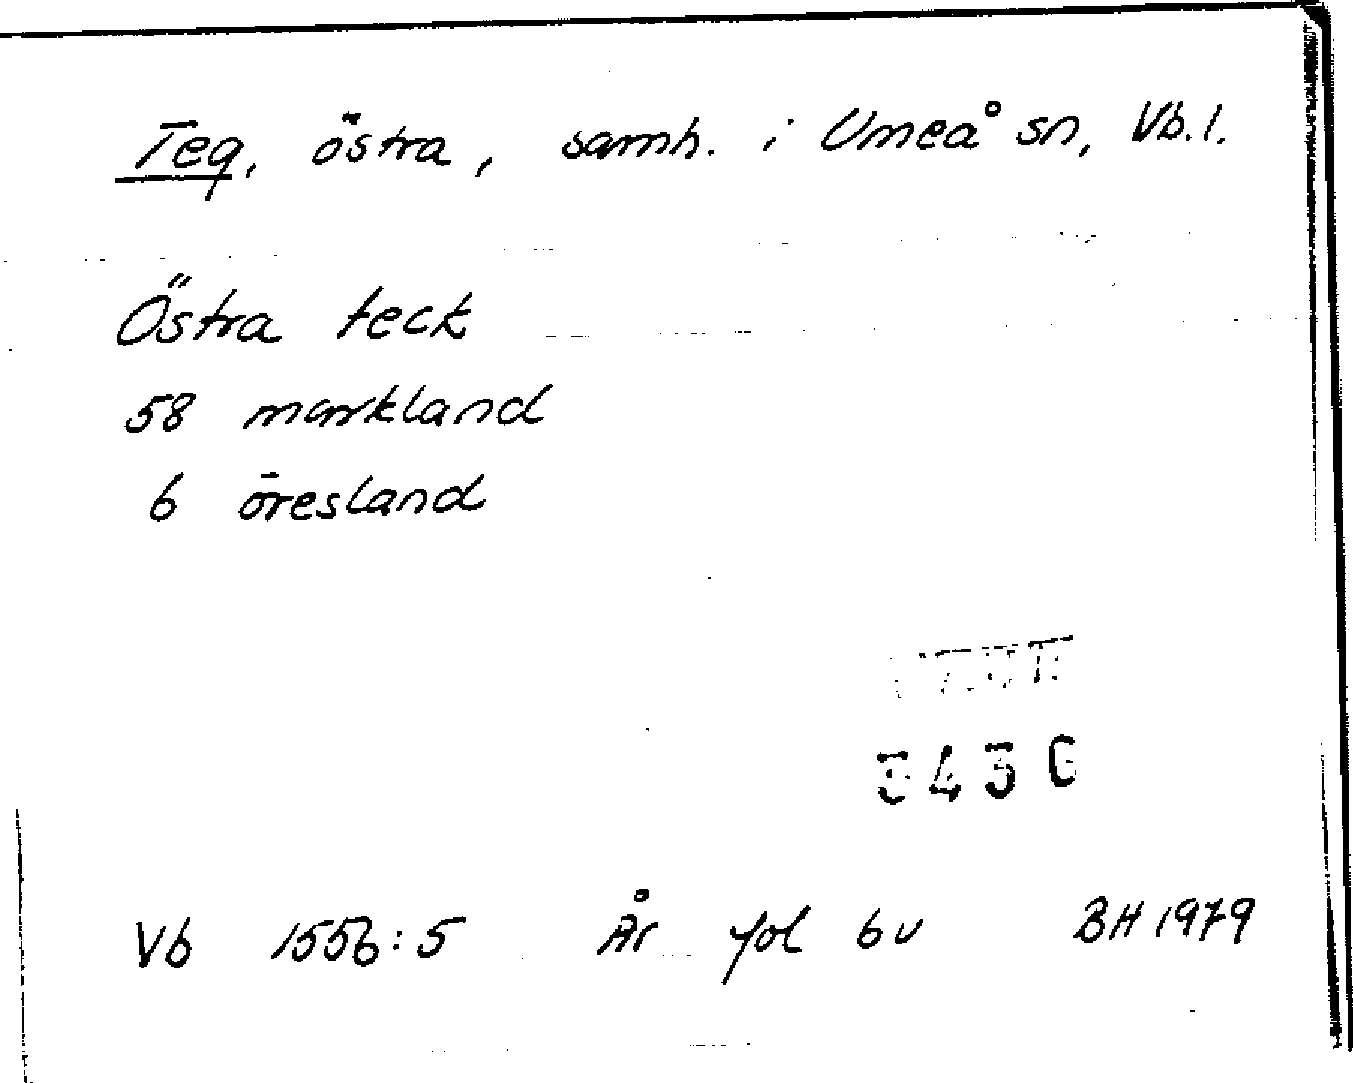 Teg, östra, samh. i Umeå sn, Vb.l.
Östra teck
58 markland
6 öresland
Vb 1556:5 År fol 6v BH 1979